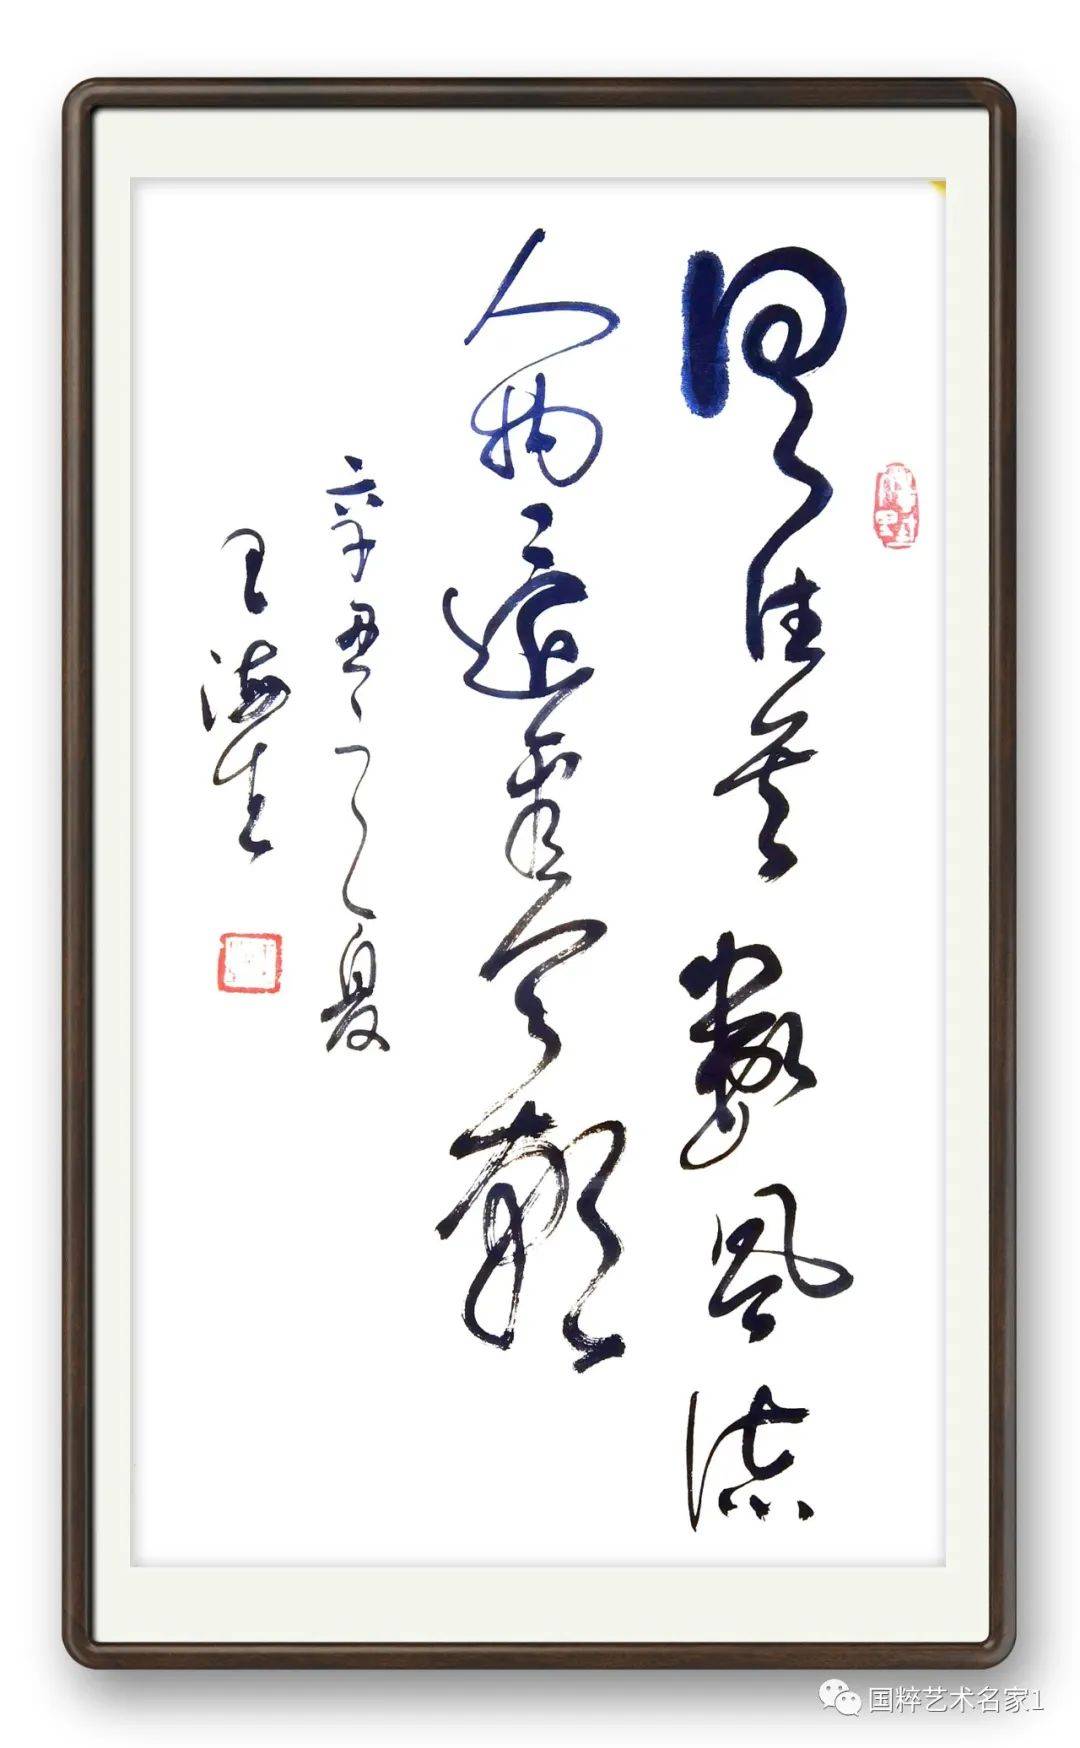 俱往矣数风流
人物还看今朝
辛丑之夏
王海生
国粹艺术名家1